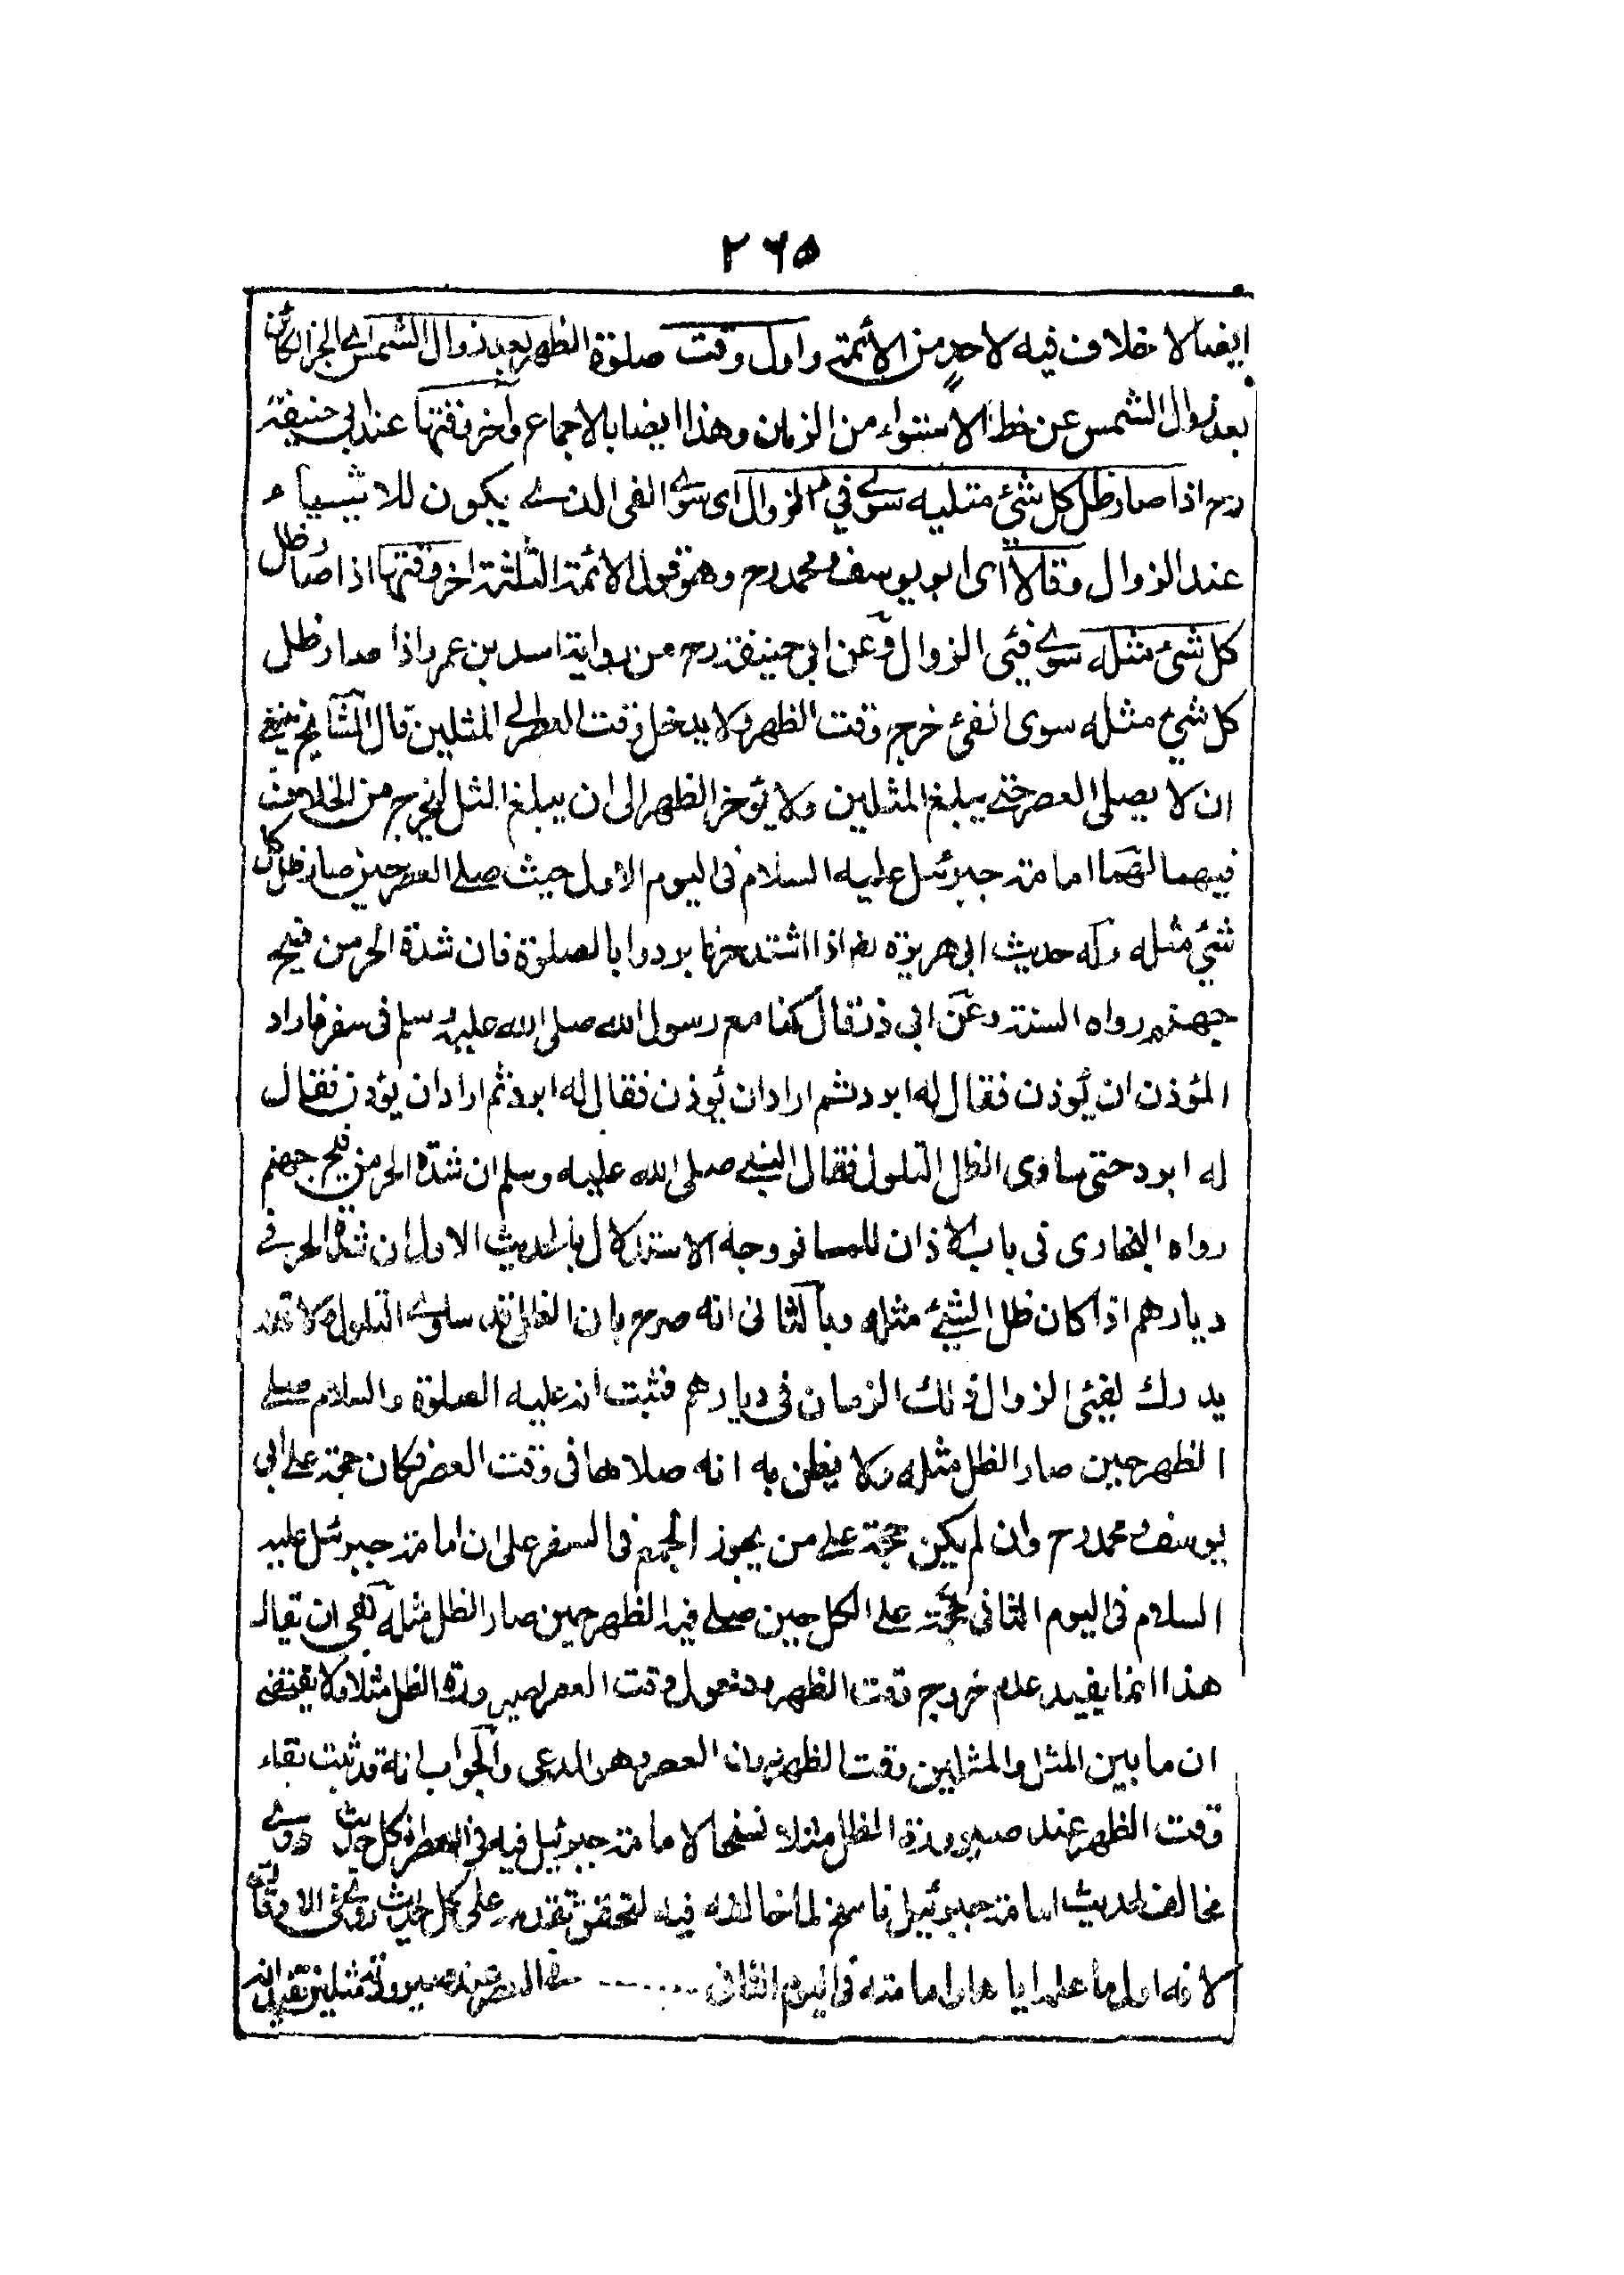 ٢٦٥
ايضا لا خلاف فيه لاحد من الائمة واول وقت صلوة الظهر بعد زوال الشمس اى الجزء الكائن
بعد زوال الشمس عن خط الاستواء من الزمان وهذا ايضا بالاجماع وآخر وقتها عند ابي حنيفة
رح اذا صار ظل كل شئ مثليه سوى في الزوال اى سوى الفى الذى يكون للاشياء
عند الزوال وقالا اى ابو يوسف ومحمد رح وهو قول الائمة الثلثة اخر وقتها اذا صار ظل
كل شئ مثله سوى فيئ الزوال وعن ابي حنيفة رح من رواية اسد بن عمرو اذا صار ظل
كل شئ مثله سوى الفئ خرج وقت الظهر ولا يدخل وقت العصر الى المثلين قال المشايخ ينبغي
ان لا يصلى العصر حتى يبلغ المثلين ولا يؤخر الظهر الى ان يبلغ المثل ليخرج من الخلاف
فيهما لهما امامة جبرئيل عليه السلام فى اليوم الاول حيث صلى العصر حين صار ظل كل
شئ مثله وله حديث ابى هريرة رض اذا اشتد الحر فابردوا بالصلوة فان شدة الحر من فيح
جهنم رواه الستة وعن ابى ذر قال كنا مع رسول الله صلى الله عليه وسلم فى سفر فاراد
المؤذن ان يؤذن فقال له ابرد ثم اراد ان يؤذن فقال له ابرد ثم اراد ان يؤذن فقال
له ابرد حتى ساوى الظل التلول فقال النبى صلى الله عليه وسلم ان شدة الحر من فيح جهنم
رواه البخارى فى باب الاذان للمسافر ووجه الاستدلال بالحديث الاول ان شدة الحر فى
ديارهم اذا كان ظل الشئ مثله وبالثانى انه صرح بان الظل قد ساوى التلول ولا قدر
يدرك لفيئ الزوال ذلك الزمان فى ديارهم فثبت انه عليه الصلوة والسلام صلى
الظهر حين صار الظل مثله ولا يظن به انه صلاها فى وقت العصر فكان حجة على ابى
يوسف ومحمد رح وان لم يكن حجة على من يجوز الجمع فى السفر على ان امامة جبرئيل عليه
السلام فى اليوم الثانى حجة على الكل حين صلى فيه الظهر حين صار الظل مثله بقى ان يقال
هذا انما يفيد عدم خروج وقت الظهر ودخول وقت العصر لصيرورة الظل مثلا ولا يقتضى
ان ما بين المثل والمثلين وقت الظهر دون العصر وهو المدعى والجواب انه قد ثبت بقاء
وقت الظهر عند صيرورة الظل مثلا نسخا لامامة جبرئيل فيه فى العصر فكل حديث روى
مخالف لحديث امامة جبرئيل ناسخ لما خالفه فيه لتحقق تقدمه على كل حديث روى فى الاوقات
لانه اول ما علمه اياها وامامته فى اليوم الثانى ........ فى العصر عند صيرورته مثلين تفيد انه